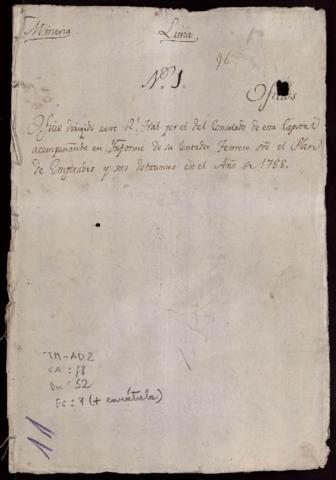 Mineria Lima
96
N.º 1.
Oficios
Oficio dirigido a este R.l Tral por el del Consulado de esta Capital
acompañando un Informe de su Contador Ferrero sre el Plan
de Empleados y sus dotaciones en el Año de 1788.
TM-AD2
CA: 18
Doc: 52
Fs: 7 (+ carátula)
11